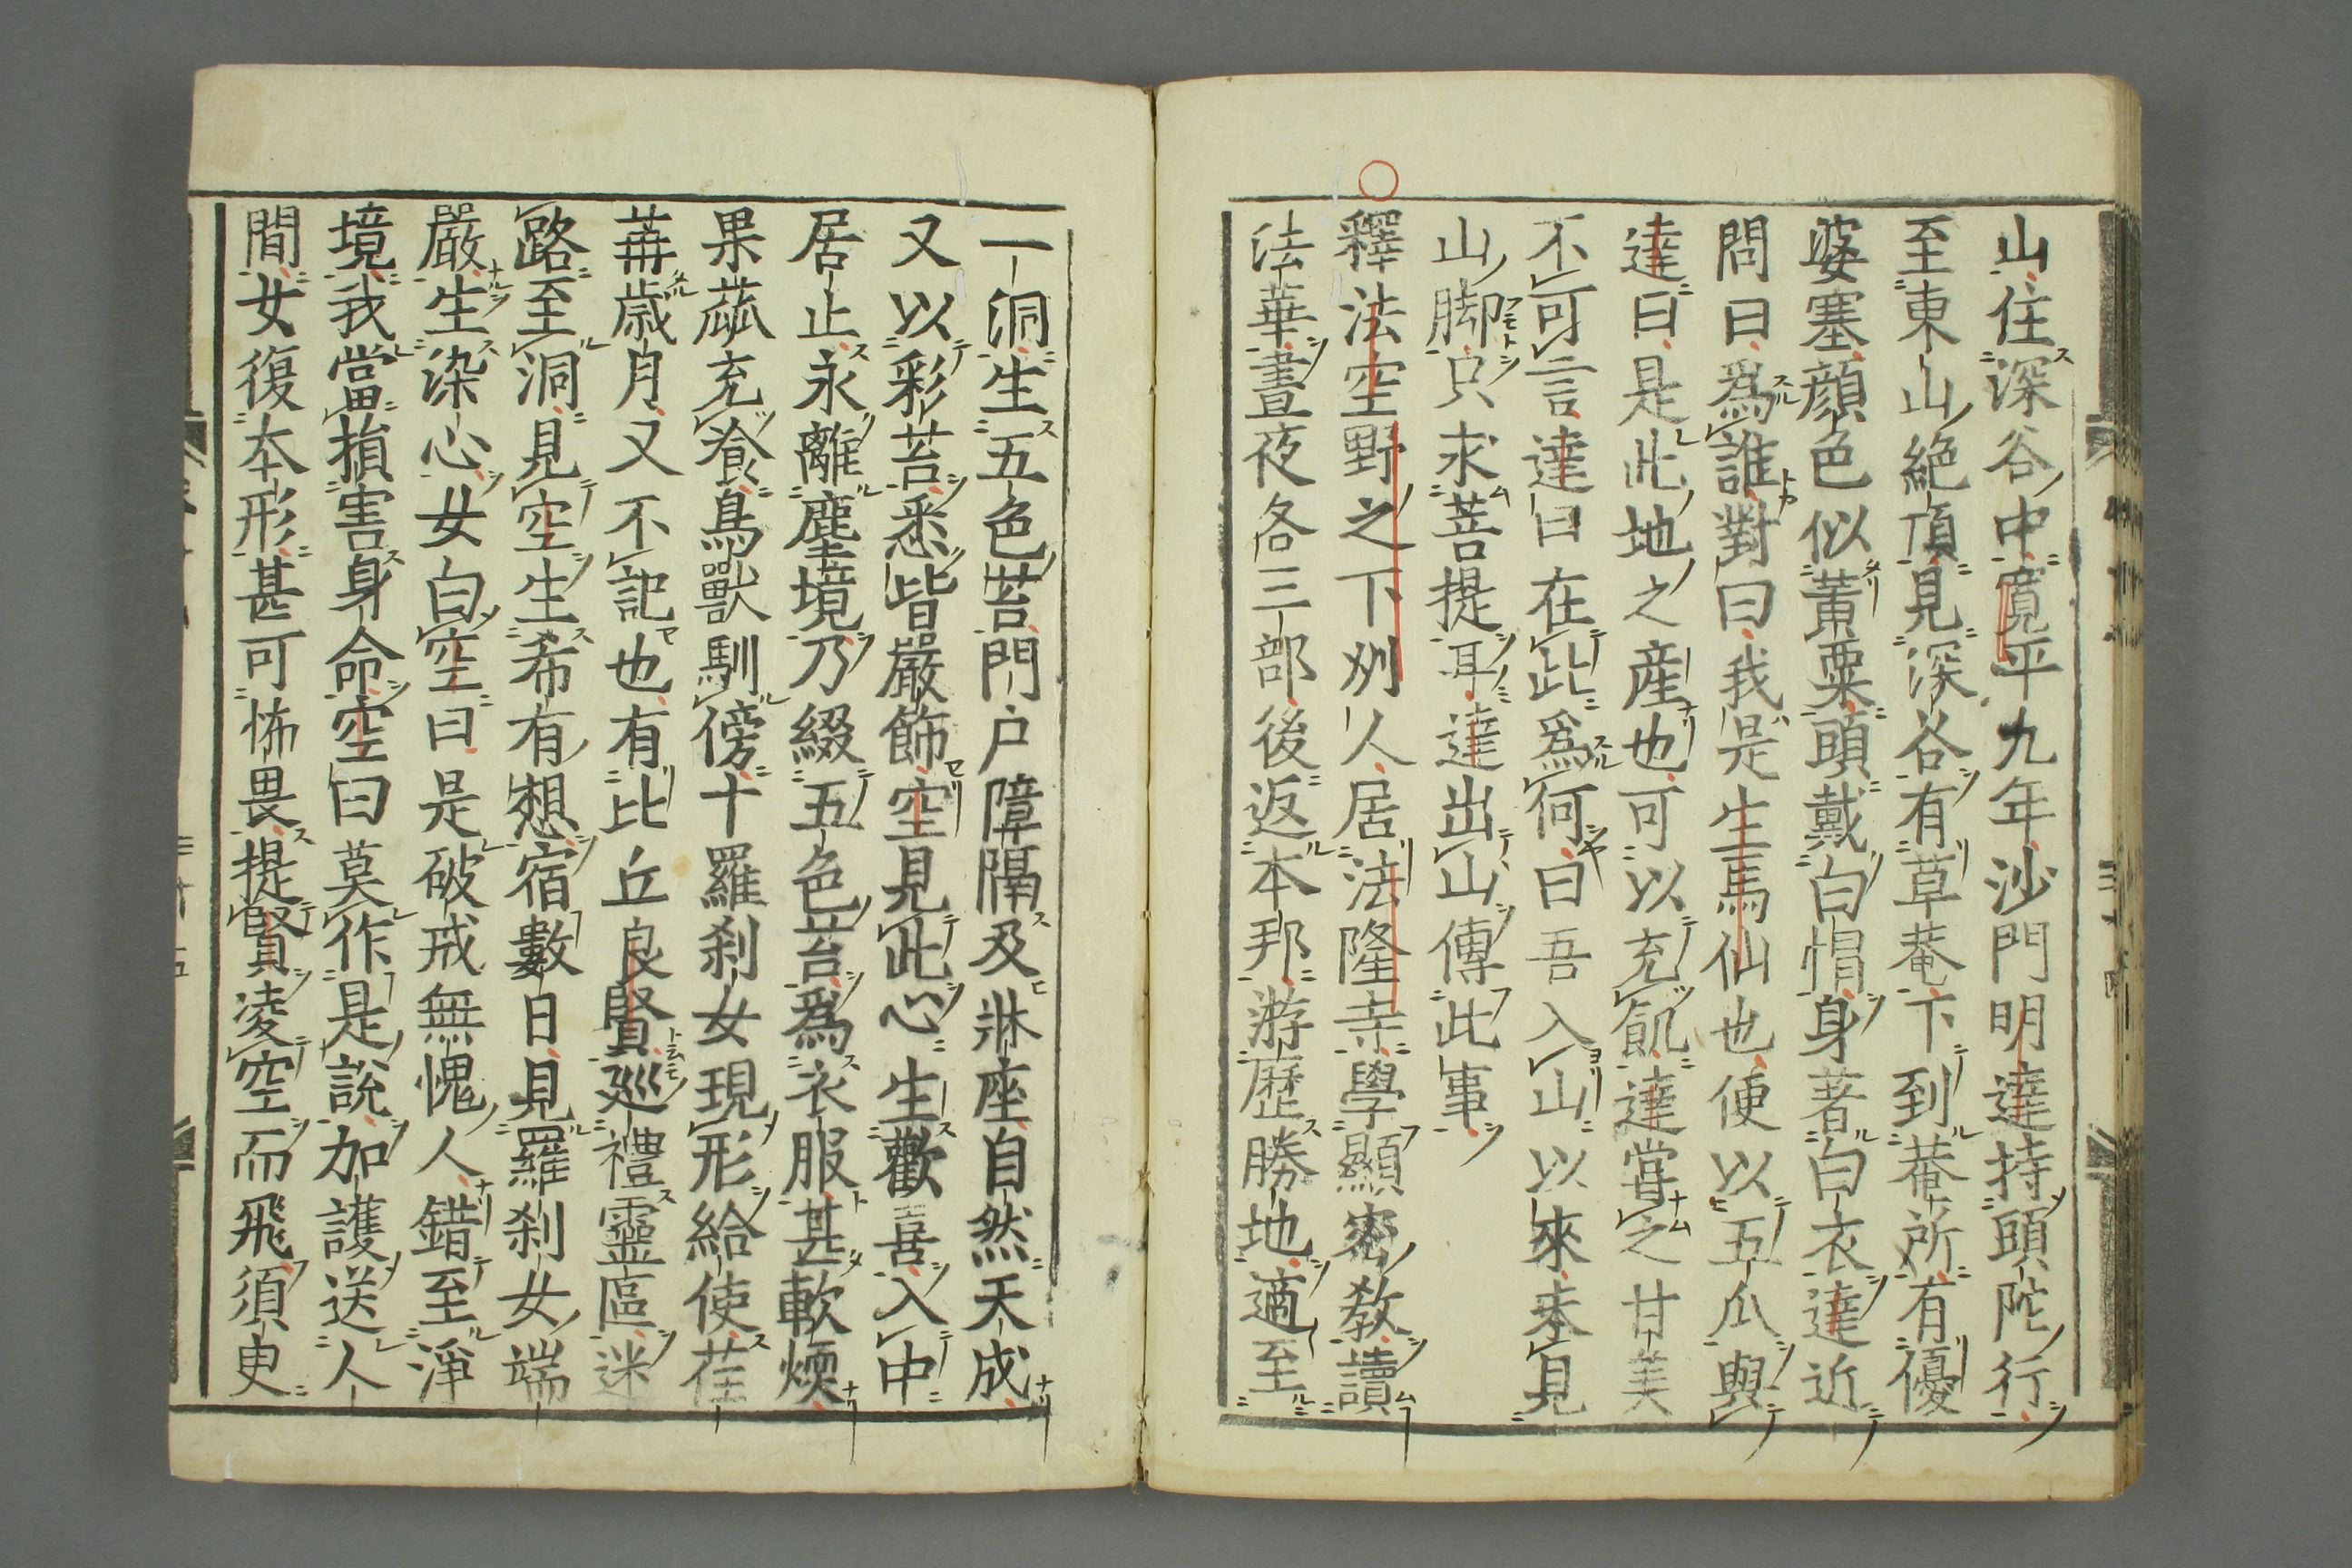 山住深谷中寛平九年沙門明達持頭陀行
至東山絶頂見深谷有草菴下到菴所有優
婆塞顔色似黄粟頭戴白帽身著白衣達近
問曰爲誰對曰我是生馬仙也便以五瓜與
達曰是此地之産也可以充飢達甞之甘美
不可言達曰在此爲何曰吾入山以來未見
山脚只求菩提耳達出山傳此事
釋法空野之下州人居法隆寺學顯密教讀
法華晝夜各三部後返本邦游歴勝地適至
一洞生五色苔門户障隔及牀座自然天成
又以彩苔悉皆嚴飾空見此心生歡喜入中
居止永離塵境乃綴五色苔爲衣服甚軟煗
果蓏充飡鳥獸馴傍十羅刹女現形給使荏
苒歳月又不記也有比丘良賢廵禮靈區迷
路至洞見空生希有想宿數日見羅刹女端
嚴生染心女白空曰是破戒無愧人錯至淨
境我當損害身命空曰莫作是説加護送人
間女復本形甚可怖畏提賢凌空而飛須臾